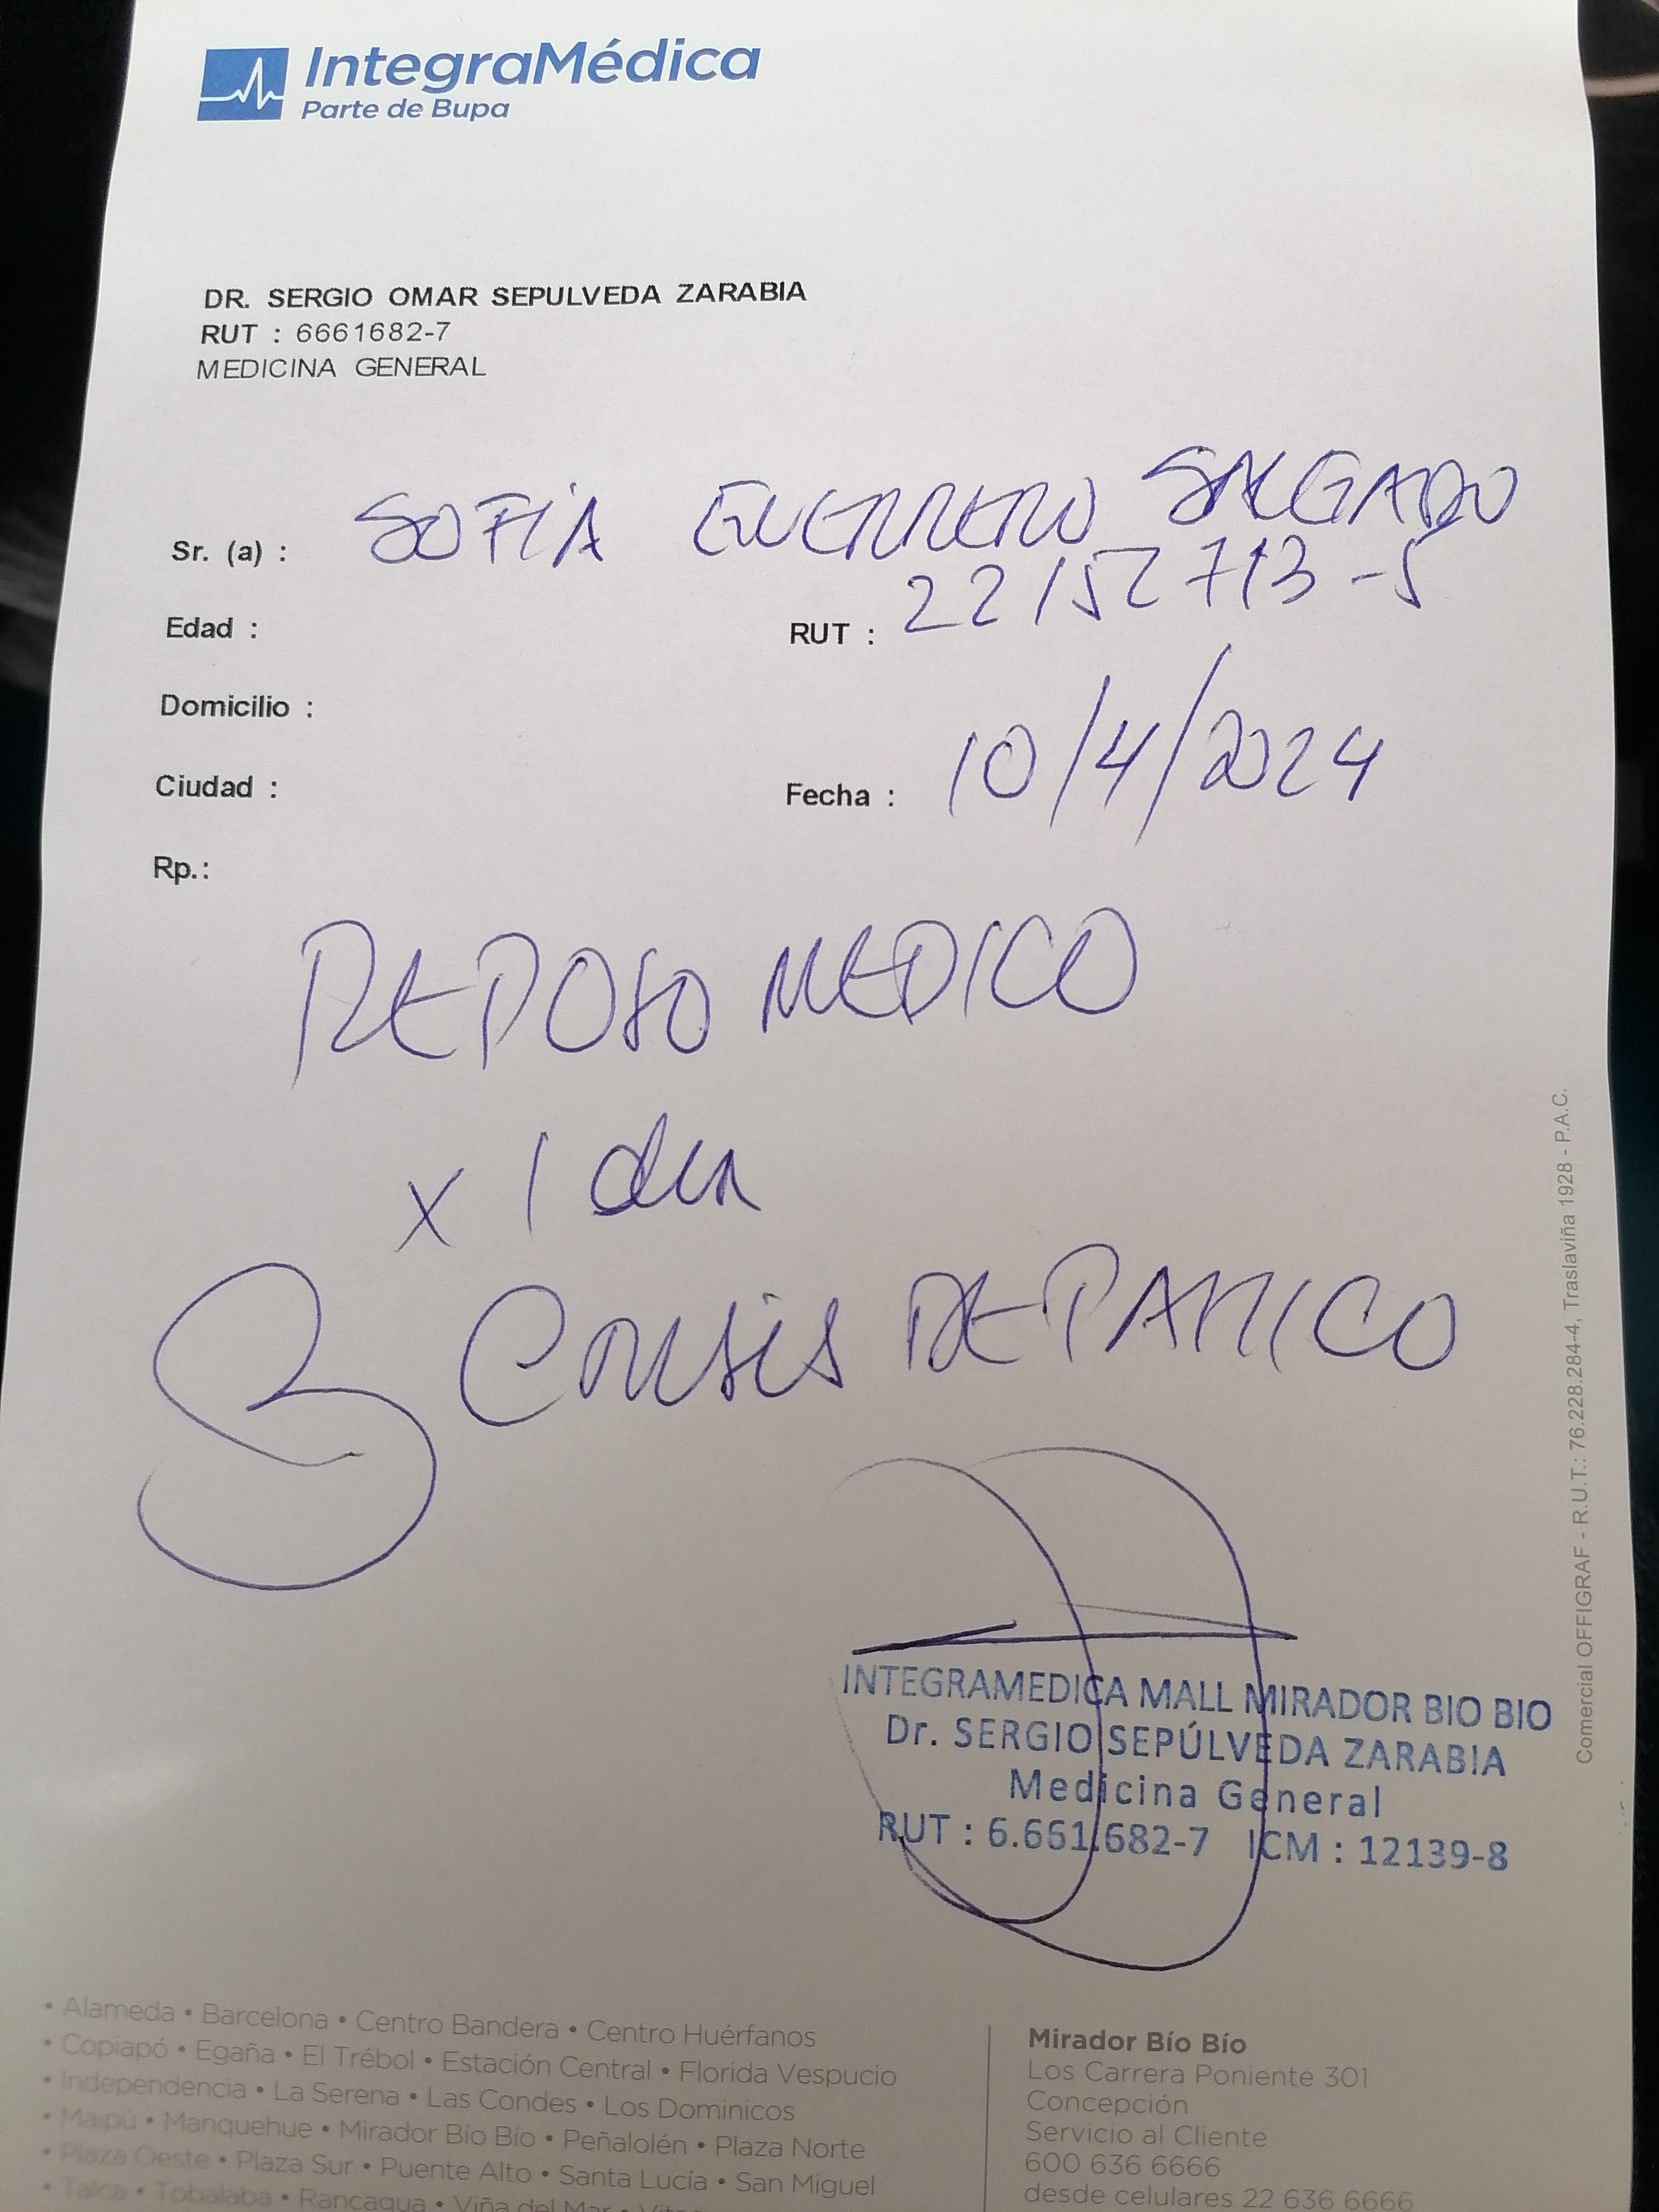 IntegraMédica
Parte de Bupa
DR. SERGIO OMAR SEPULVEDA ZARABIA
RUT : 6661682-7
MEDICINA GENERAL
Sr. (a) : SOFIA GUERRERO SALGADO
Edad :
RUT : 22152713-5
Domicilio :
Ciudad :
Fecha : 10/4/2024
Rp.:
REPOSO MEDICO
x 1 dia
CRISIS DE PANICO
INTEGRAMEDICA MALL MIRADOR BIO BIO
Dr. SERGIO SEPÚLVEDA ZARABIA
Medicina General
RUT : 6.661.682-7 ICM : 12139-8
Comercial OFFIGRAF - R.U.T.: 76.228.284-4, Traslaviña 1928 - P.A.C.
• Alameda • Barcelona • Centro Bandera • Centro Huérfanos
• Copiapó • Egaña • El Trébol • Estación Central • Florida Vespucio
• Independencia • La Serena • Las Condes • Los Dominicos
• Maipú • Manquehue • Mirador Bío Bío • Peñalolén • Plaza Norte
• Plaza Oeste • Plaza Sur • Puente Alto • Santa Lucía • San Miguel
• Talca • Tobalaba • Rancagua • Viña del Mar •
Mirador Bío Bío
Los Carrera Poniente 301
Concepción
Servicio al Cliente
600 636 6666
desde celulares 22 636 6666